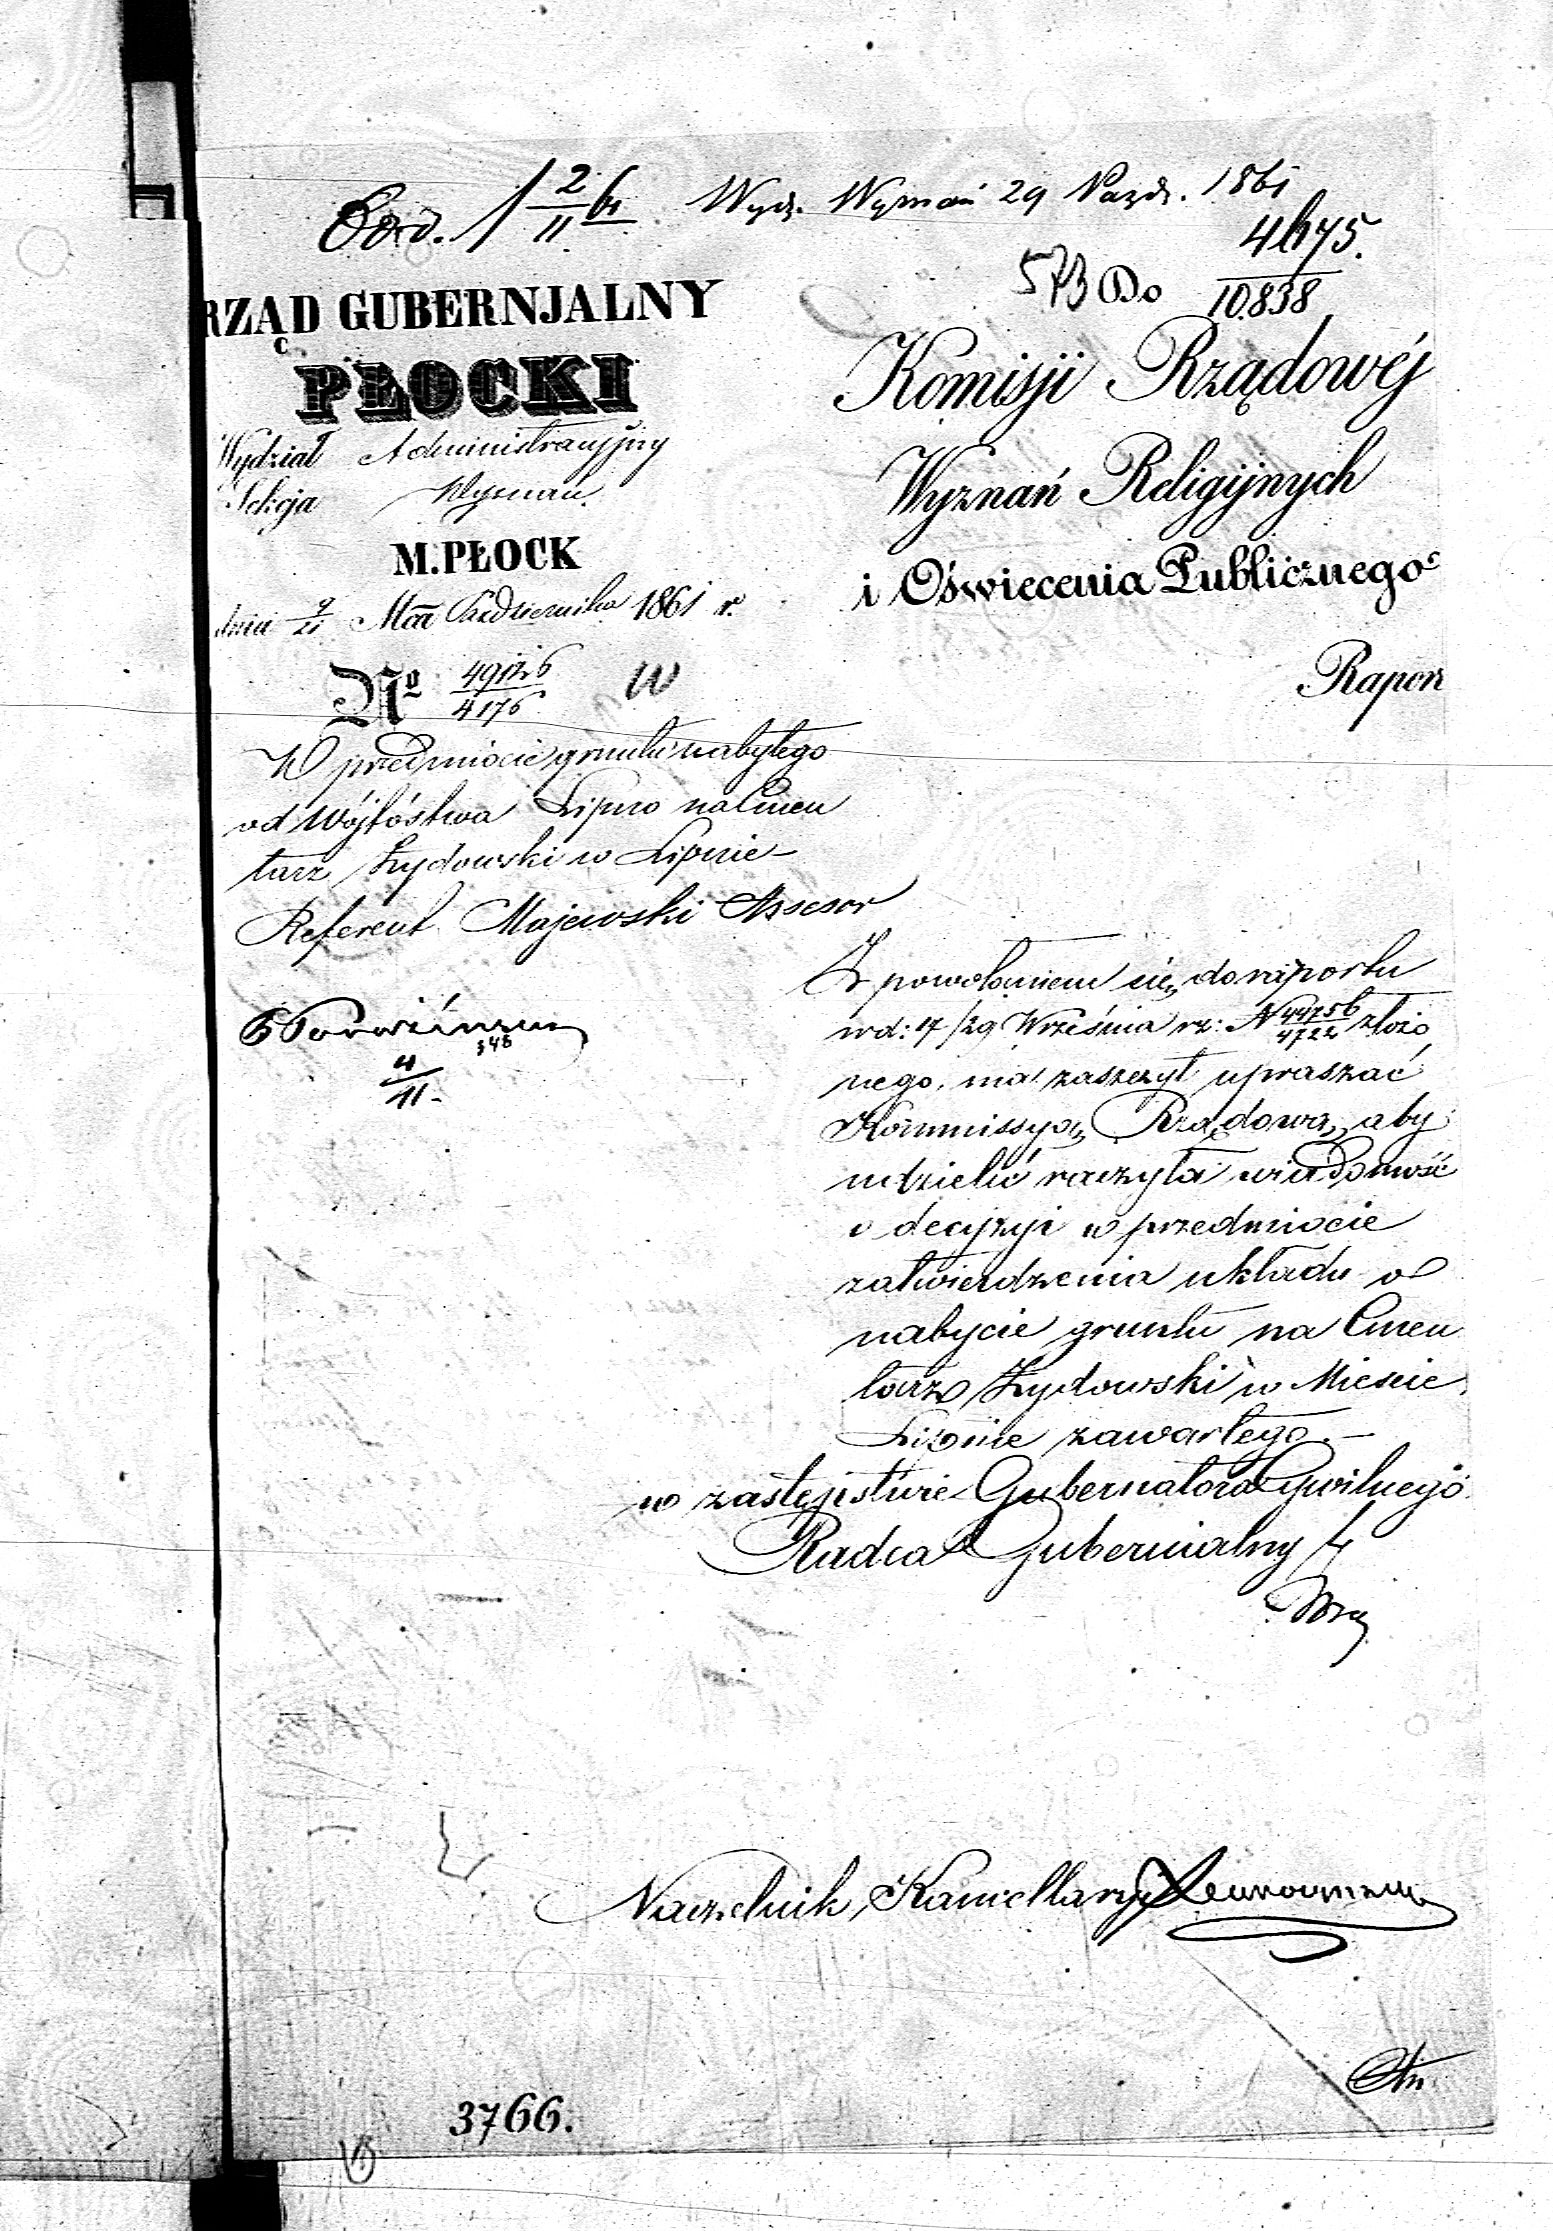 Wydz. Wyznań 29 Paźdz. 1861
573 Do 10838
RZĄD GUBERNJALNY
PŁOCKI
Wydział Administracyjny
Sekcja Wyznań
M. PŁOCK
dnia 9/21 Mca Października 1861 r.
No 49126/4176
W przedmiocie gruntu nabytego
od Wójtóstwa Lipno na Cmen
tarz Żydowski w Lipnie –
Referent Majewski Assesor
348
4/11
Komisji Rządowéj
Wyznań Religijnych
i Oświecenia Publicznego
Raport
Z powołaniem się do raportu
w d: 17/29 Września rz: N 44756/4722 złożo
nego, ma zaszczyt upraszać
Kommissyą Rządową, aby
udzielić raczyła wiadomość
o decyzyi w przedmiocie
zatwierdzenia układu o
nabycie gruntu na Cmen
tarz Żydowski w Mieście
Lipnie zawartego. –
w zastępstwie Gubernatora Cywilnego
Radca Gubernialny
Naczelnik Kancellaryi
3766.